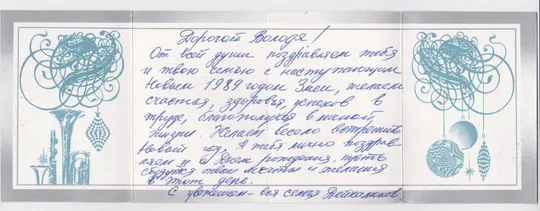 Дорогой Володя!
От всей души поздравляем тебя
и твою семью с наступающим
Новым 1989 годом Змеи, желаем
счастья, здоровья, успехов в
труде, благополучия в личной
жизни. Желаем весело встретить
Новый год. А тебя лично поздрав-
ляем и с Днём рождения, пусть
сбудутся твои мечты и желания
в этот день.
С уважением - вся семья